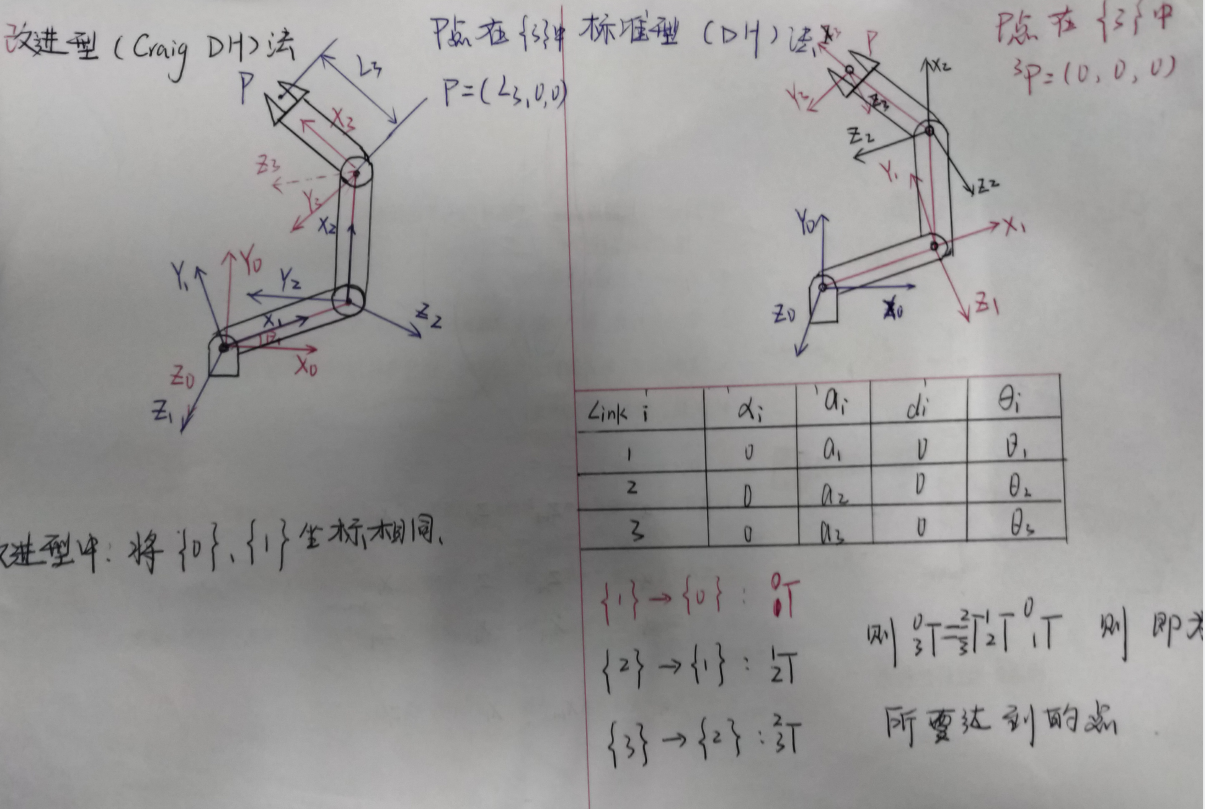 改进型 (Craig DH) 法
P点在{3}中
P=(L3,0,0)
L3
P
X3
Z3
Y3
X2
Y1
Y0
Y2
Z2
X1
Z0
X0
Z1
进型中: 将{0}、{1}坐标相同、
标准型 (DH) 法
P点在{3}中
³P=(0,0,0)
P
X2
Y3
Z3
Z2
Y1
Z2
Y0
X1
Z0
X0
Z1
Link i αi ai di θi
1 0 a1 0 θ1
2 0 a2 0 θ2
3 0 a3 0 θ3
{1}→{0}: ⁰₁T
{2}→{1}: ¹₂T
{3}→{2}: ²₃T
则 ⁰₃T=²₃T¹₂T⁰₁T 则即
所要达到的点